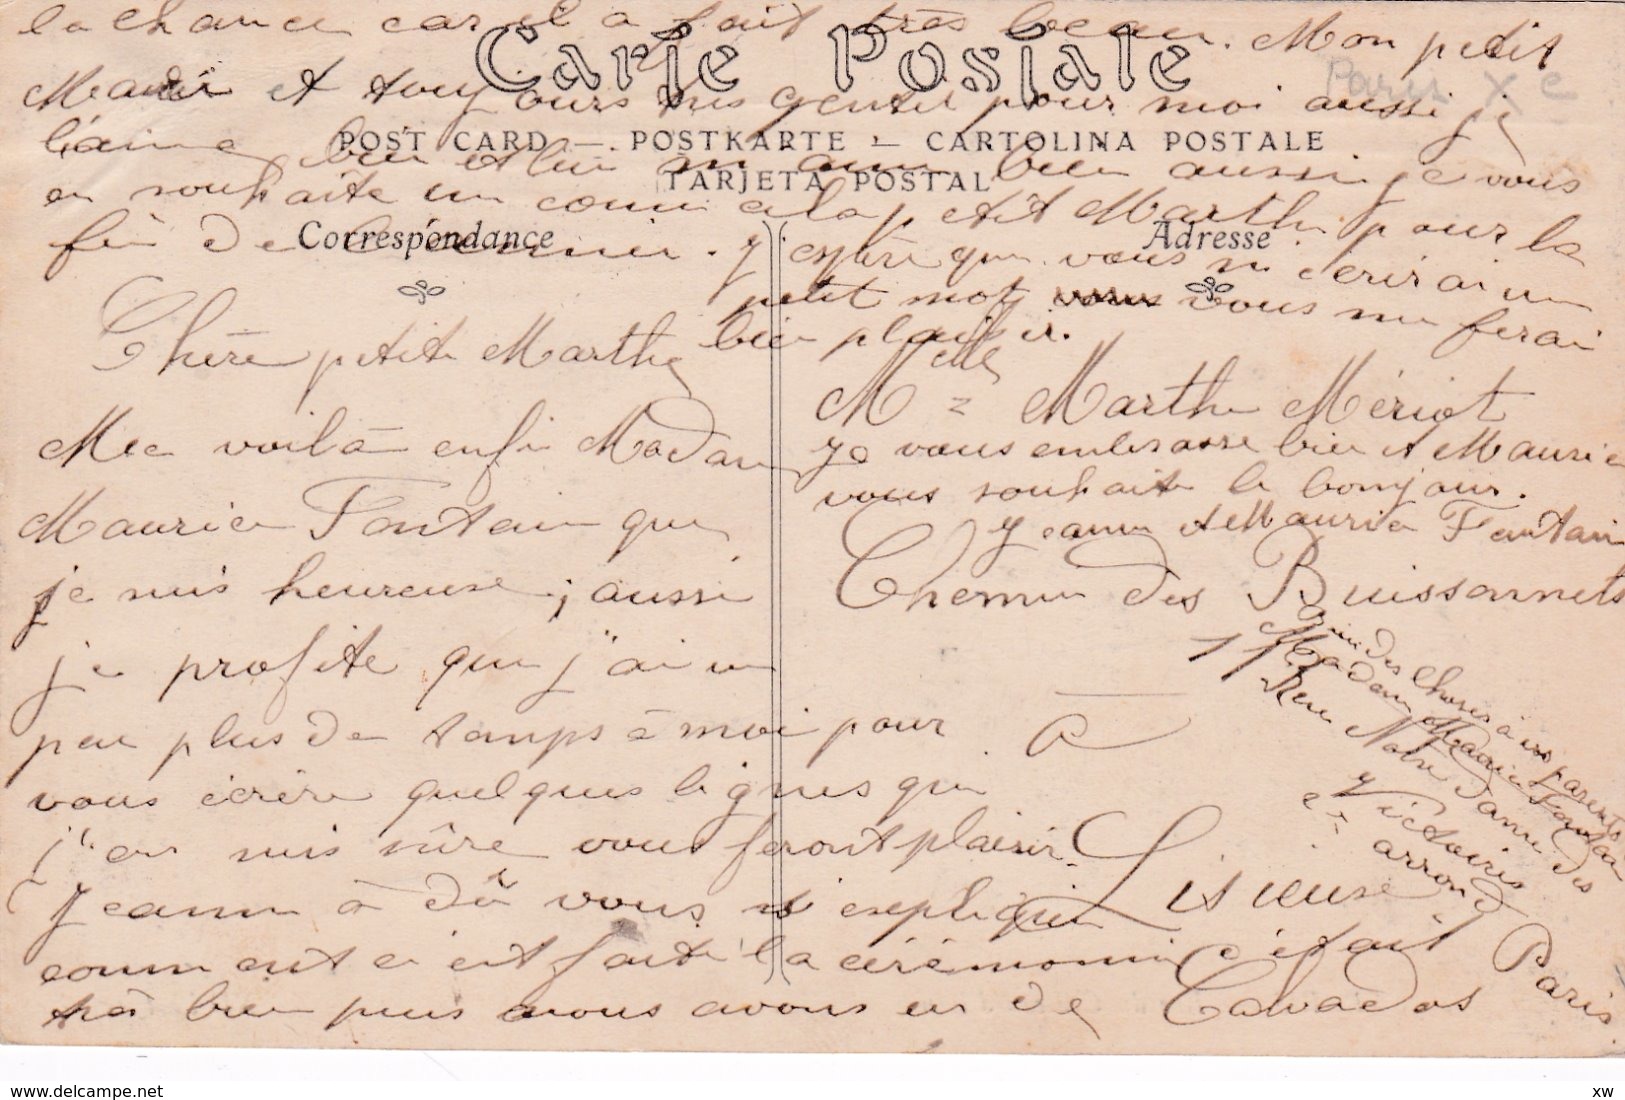 Carte Postale
POST CARD — POSTKARTE — CARTOLINA POSTALE
TARJETA POSTAL
Correspondance
Adresse
Paris Xe
Chère petite Marthe
Me voilà enfi Madam
Maurice Fontain que
je suis heureuse, aussi
je profite que j'ai un
peu plus de temps à moi pour
vous écrire quelques lignes qui
j'en suis sûre vous feront plaisir.
Jeanne à dû vous expliquer
comment c'est fait la cérémonie c'était
très bien puis nous avons eu de
la chance car il a fait très beau. Mon petit
Mari et toujours très gentil pour moi aussi je
l'aime bien et lui m'aim bien aussi je vous
en souhaite un comme cela petit Marthe pour la
fin de l'année. J'espère que vous m'écrirai un
petit mot vous me ferai
bien plaisir.
Melle Marthe Mériot
Je vous embrasse bien et Maurice
vous souhaite le bonjour.
Jeanne et Maurice Fontain
Chemin des Buissonnets
à
Lisieuse
Calvados
Bien des choses à vos parents
Madame Maurice Fontain
113 Rue Notre Dame des
Victoires
2e arrond
Paris
www.delcampe.net
xw